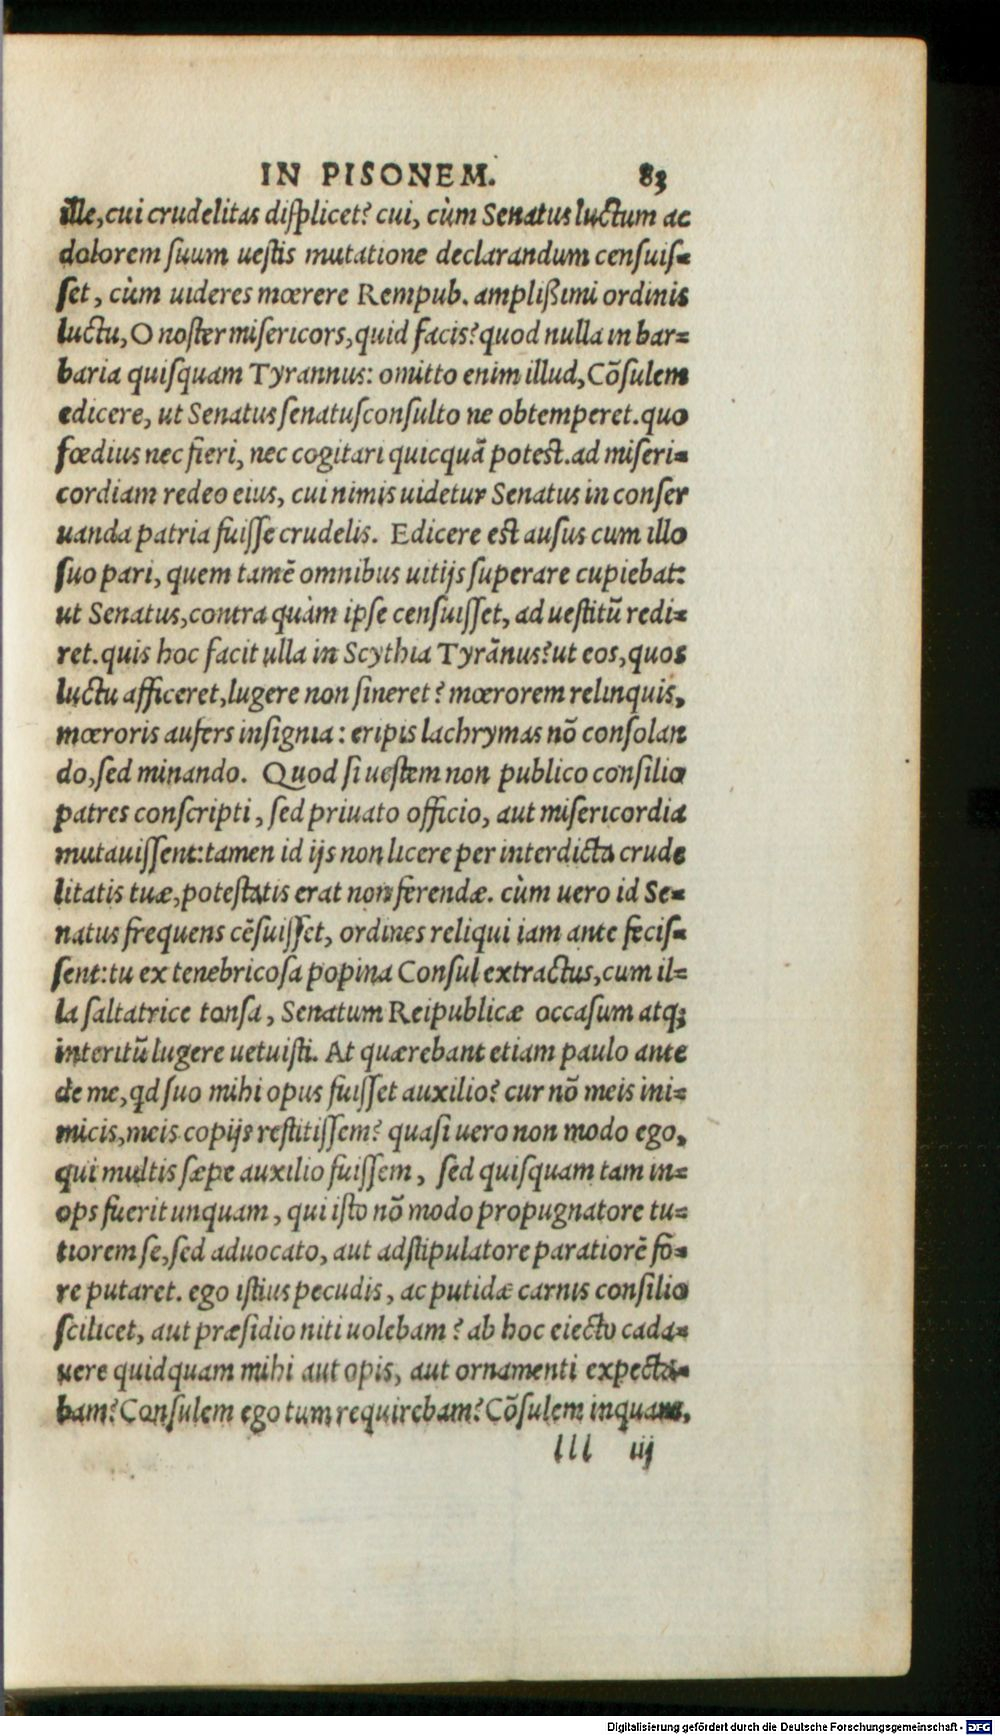 IN PISONEM. 83
ille, cui crudelitas displicet? cui, cùm Senatus luctum ac
dolorem suum uestis mutatione declarandum censuis-
set, cùm uideres mœrere Rempub. amplißimi ordinis
luctu, O noster misericors, quid facis? quod nulla in bar-
baria quisquam Tyrannus: omitto enim illud, Cõsulem
edicere, ut Senatus senatusconsulto ne obtemperet. quo
fœdius nec fieri, nec cogitari quicquã potest. ad miseri-
cordiam redeo eius, cui nimis uidetur Senatus in conser
uanda patria fuisse crudelis. Edicere est ausus cum illo
suo pari, quem tamẽ omnibus uitijs superare cupiebat:
ut Senatus, contra quàm ipse censuisset, ad uestitũ redi-
ret. quis hoc facit ulla in Scythia Tyrãnus? ut eos, quos
luctu afficeret, lugere non sineret? mœrorem relinquis,
mœroris aufers insignia: eripis lachrymas nõ consolan
do, sed minando. Quod si uestem non publico consilio
patres conscripti, sed priuato officio, aut misericordia
mutauissent: tamen id ijs non licere per interdicta crude
litatis tuæ, potestatis erat non ferendæ. cùm uero id Se-
natus frequens cẽsuisset, ordines reliqui iam ante fecis-
sent: tu ex tenebricosa popina Consul extractus, cum il-
la saltatrice tonsa, Senatum Reipublicæ occasum atq;
interitũ lugere uetuisti. At quærebant etiam paulo ante
de me, qd suo mihi opus fuisset auxilio? cur nõ meis ini-
micis, meis copijs restitissem? quasi uero non modo ego,
qui multis sæpe auxilio fuissem, sed quisquam tam in-
ops fuerit unquam, qui isto nõ modo propugnatore tu-
tiorem se, sed aduocato, aut adstipulatore paratiorẽ fo-
re putaret. ego istius pecudis, ac putidæ carnis consilio
scilicet, aut præsidio niti uolebam? ab hoc eiecto cada-
uere quidquam mihi aut opis, aut ornamenti expecta-
bam? Consulem ego tum requirebam? Cõsulem inquam,
lll iij
Digitalisierung gefördert durch die Deutsche Forschungsgemeinschaft - DFG